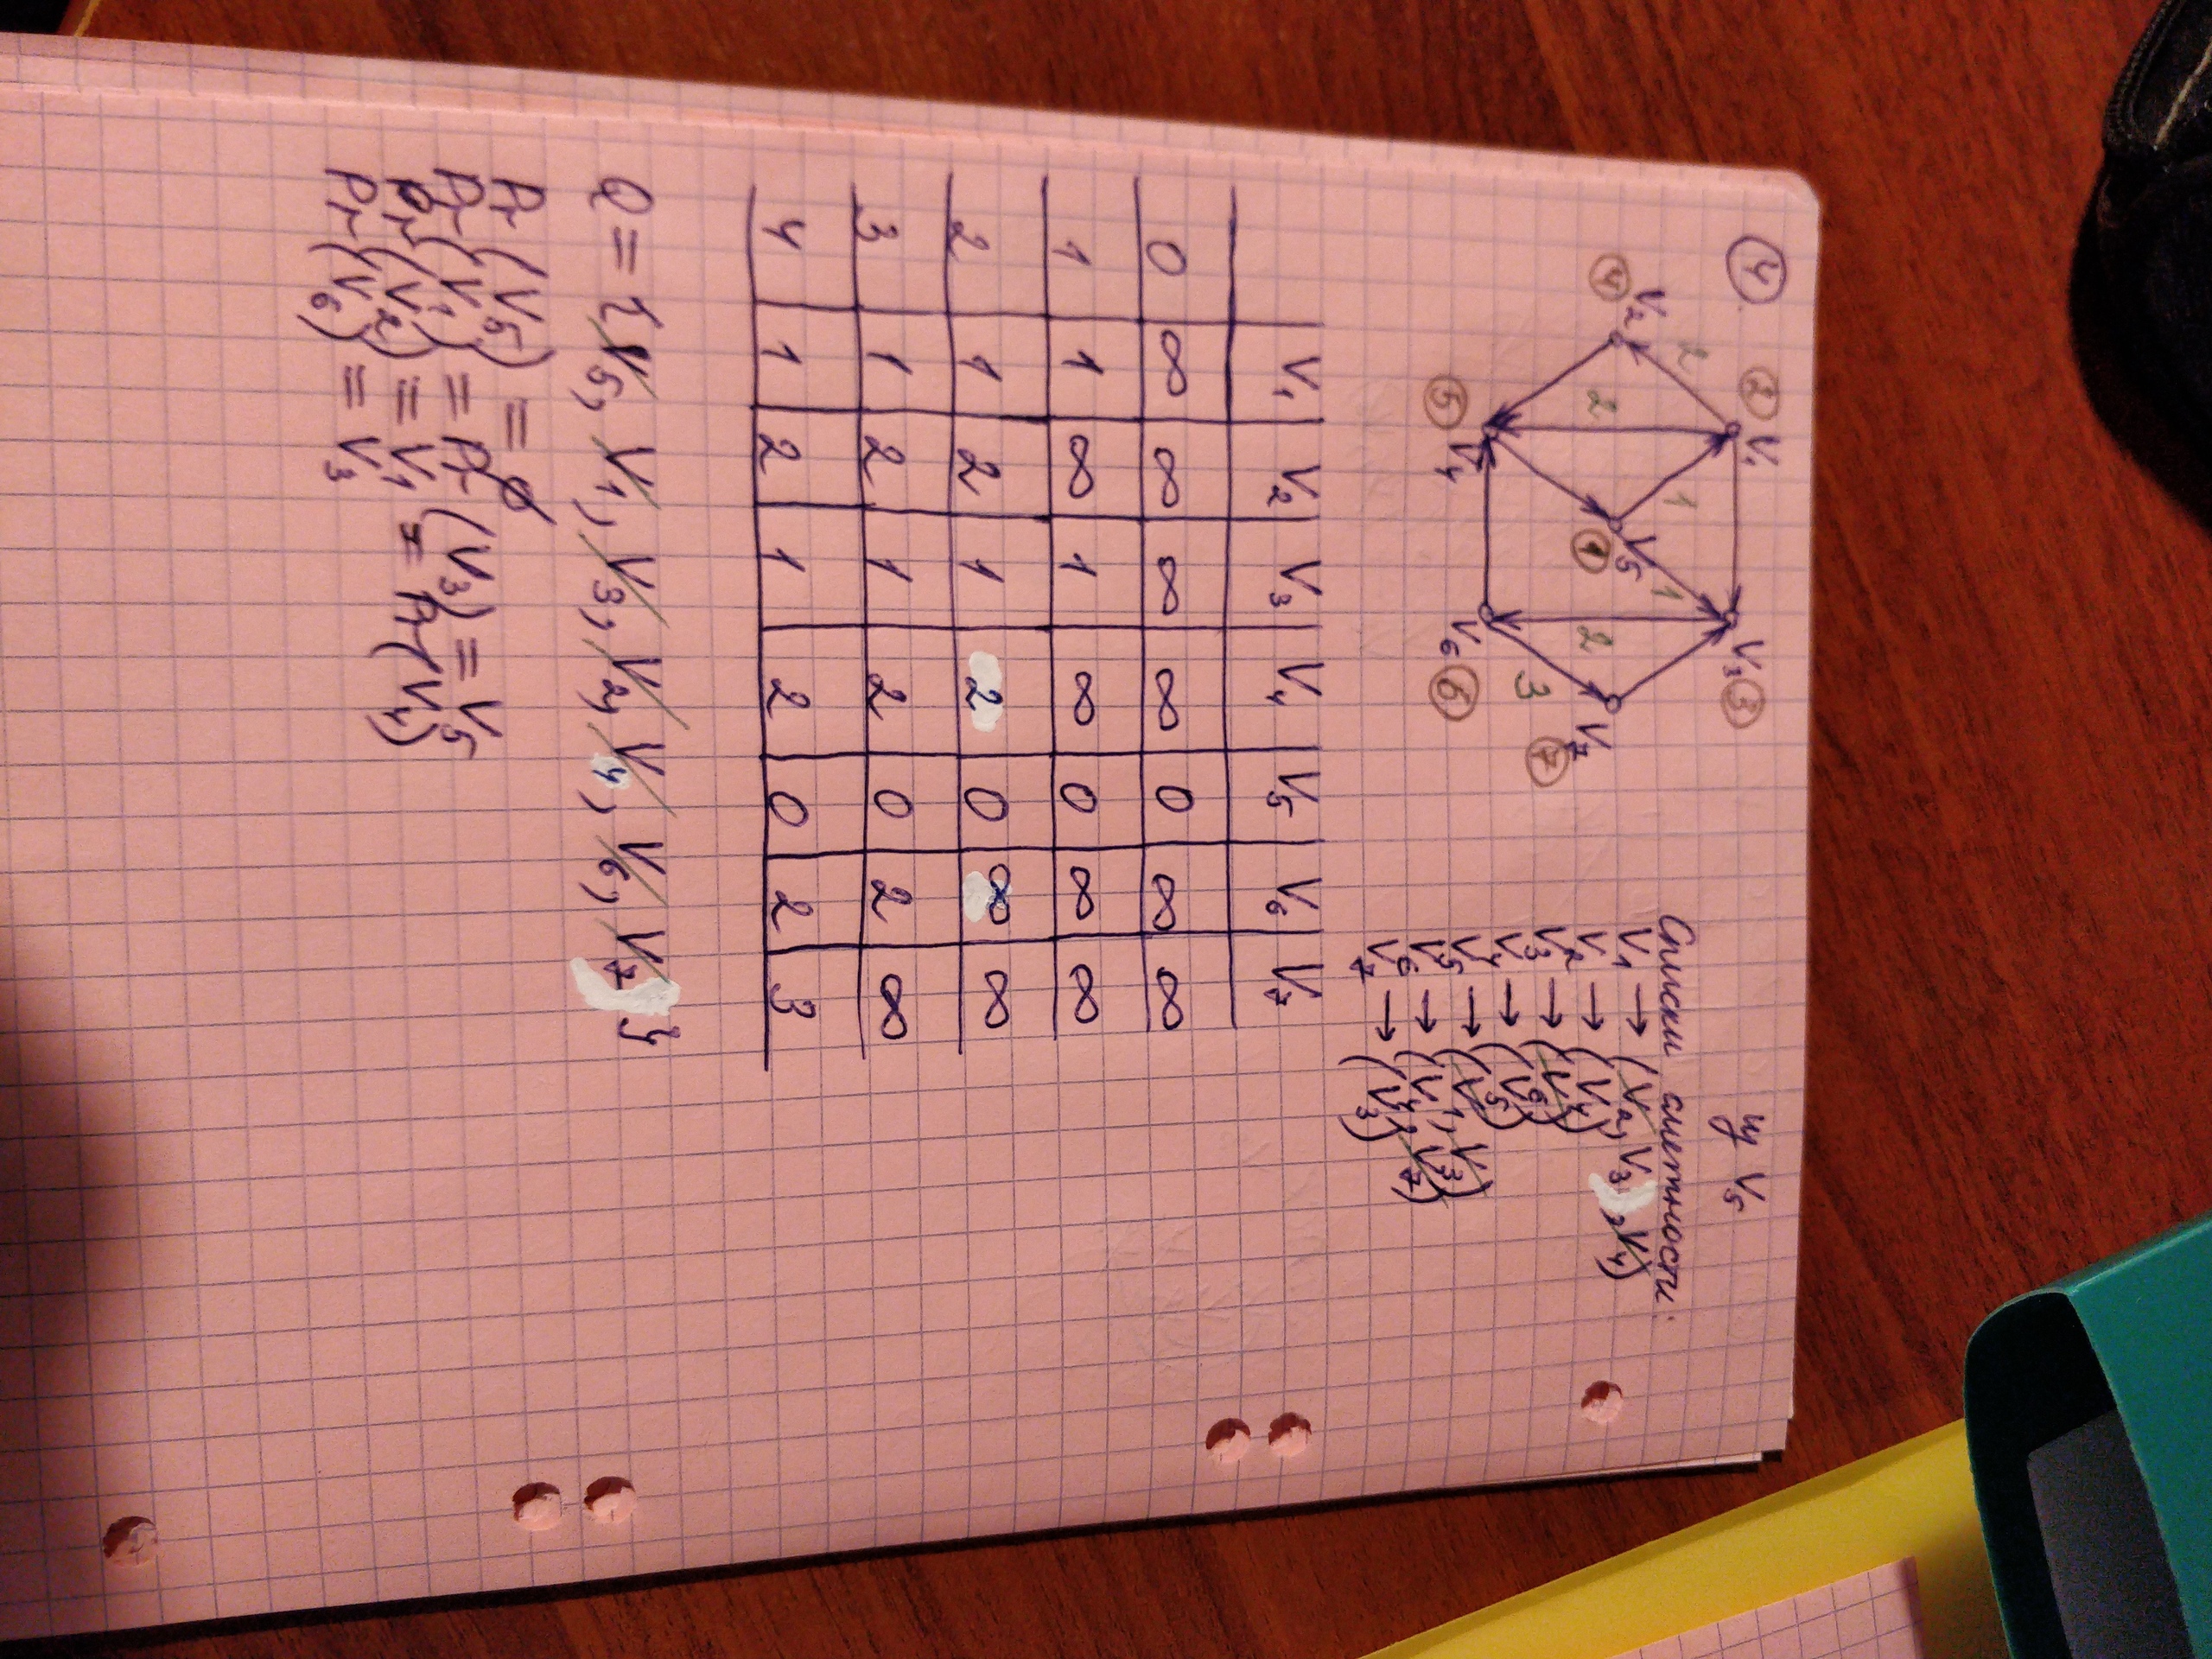 ④ из V₅
② V₁ V₃ ③
2 1 1
V₂ ④ 2 V₅ ① 2 V₇ ⑦
3
⑤ V₄ V₆ ⑥
Списки смежности:
V₁ → (V₂, V₃, V₄)
V₂ → (V₄)
V₃ → (V₆)
V₄ → (V₅)
V₅ → (V₁, V₃)
V₆ → (V₄, V₇)
V₇ → (V₃)
V₁ V₂ V₃ V₄ V₅ V₆ V₇
0 ∞ ∞ ∞ ∞ 0 ∞ ∞
1 1 ∞ 1 ∞ 0 ∞ ∞
2 1 2 1 2 0 ∞ ∞
3 1 2 1 2 0 2 ∞
4 1 2 1 2 0 2 3
Q = {V₅, V₁, V₃, V₂, V₄, V₆, V₇}
Pr(V₅) = ∅
Pr(V₁) = Pr(V₃) = V₅
Pr(V₂) = V₁ = Pr(V₄)
Pr(V₆) = V₃